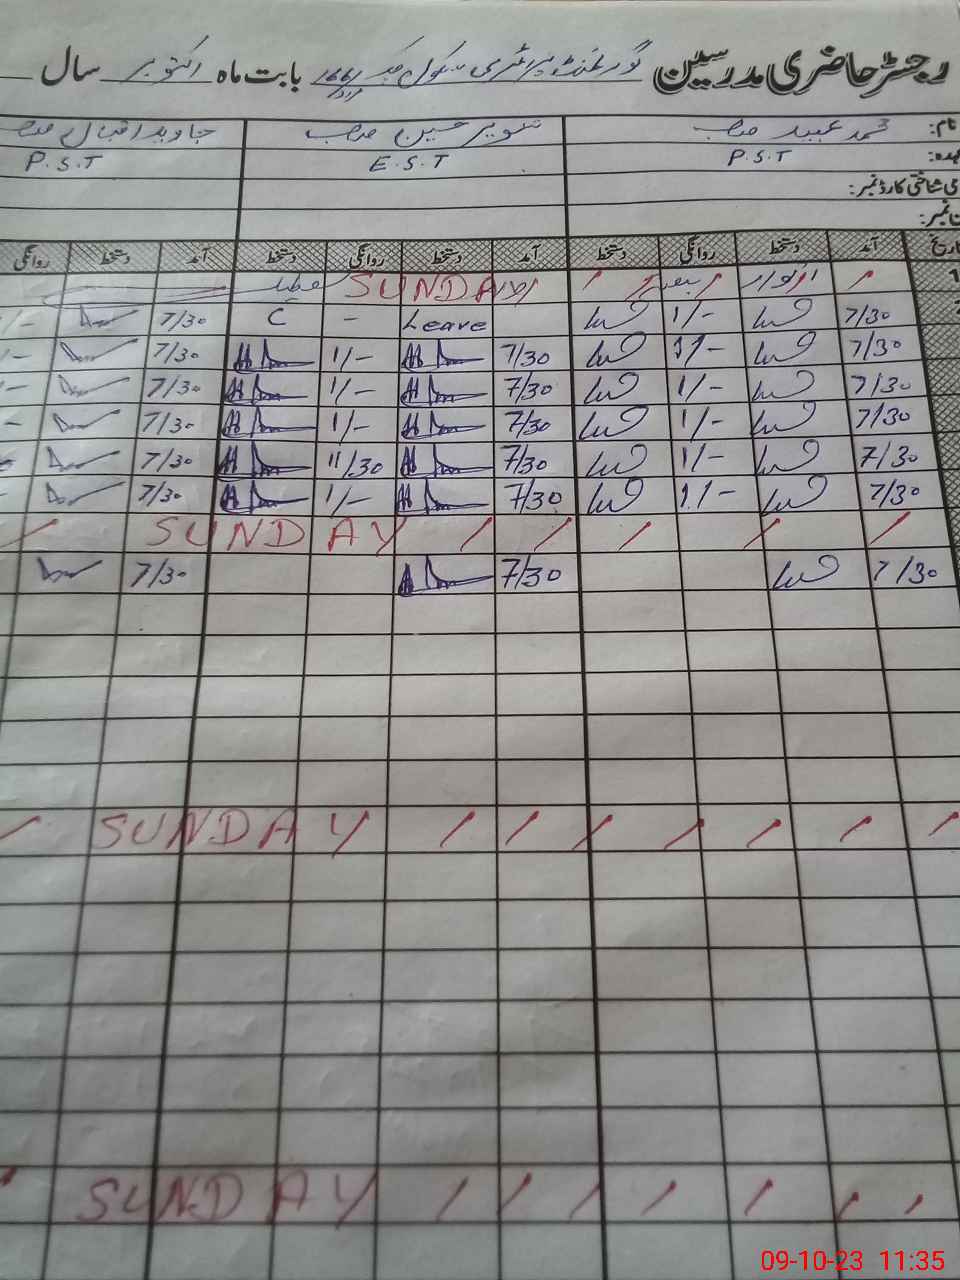 رجسٹر حاضری مدرسین گورنمنٹ پرائمری سکول بابت ماہ اکتوبر سال
نام: محمد عبید صاحب تنویر حسین صاحب جاوید اقبال صاحب
عہدہ: P.S.T E.S.T P.S.T
شناختی کارڈ نمبر:
نمبر:
تاریخ آمد دستخط روانگی دستخط آمد دستخط روانگی دستخط آمد دستخط روانگی
1 اتوار SUNDAY
7/30 1/- Leave - C 7/30 1/-
7/30 1/- 7/30 1/- 7/30 1/-
7/30 1/- 7/30 1/- 7/30 1/-
7/30 1/- 7/30 1/- 7/30
7/30 1/- 7/30 11/30 7/30
7/30 1/- 7/30 1/- 7/30
SUNDAY
7/30 7/30 7/30
SUNDAY
SUNDAY
09-10-23 11:35